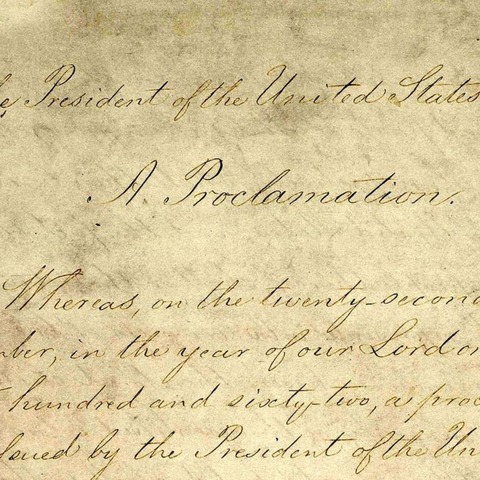 e President of the United States
A Proclamation.
Whereas, on the twenty-second
ber, in the year of our Lord on
hundred and sixty-two, a proc
sued by the President of the Un